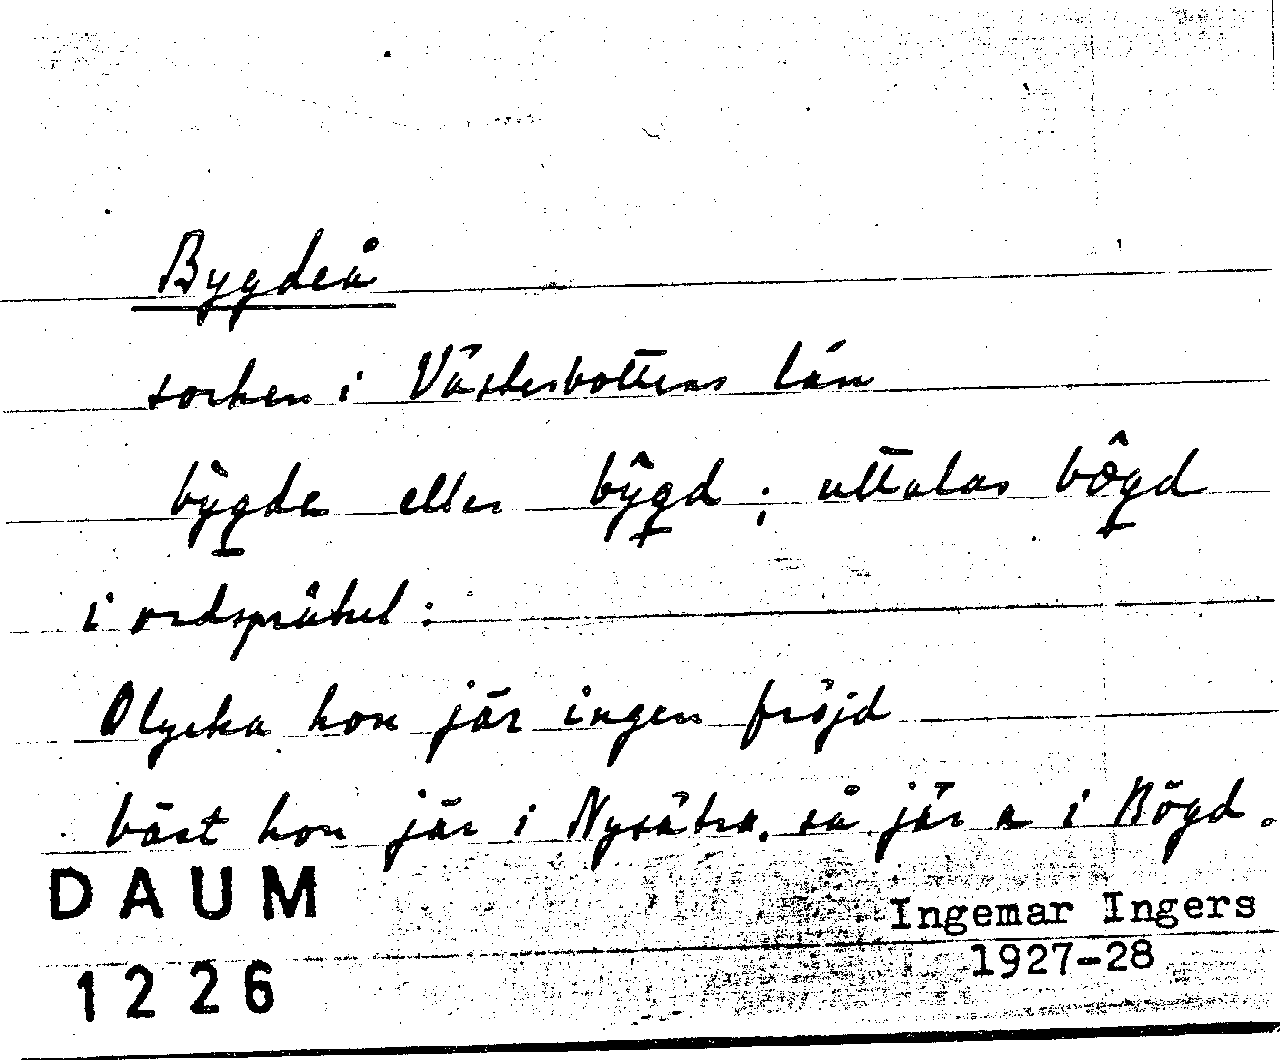 Bygdeå
socken i Västerbottens län
bygde eller bŷgd ; uttalas bôgd
i ordspråket :
Olycka hon jär ingen fröjd
bäst hon jär i Nysätra, så jär a i Bögd.
DAUM
1226
Ingemar Ingers
1927-28